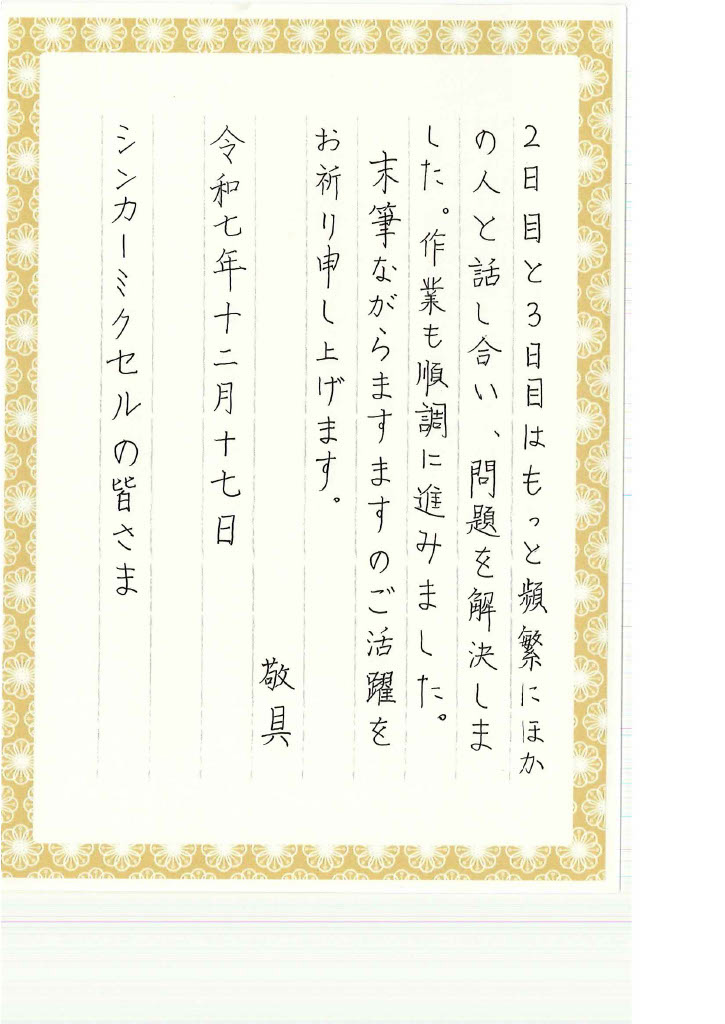 2日目と3日目はもっと頻繁にほか
の人と話し合い、問題を解決しま
した。作業も順調に進みました。
末筆ながらますますのご活躍を
お祈り申し上げます。
敬具
令和七年十二月十七日
シンカーミクセルの皆さま